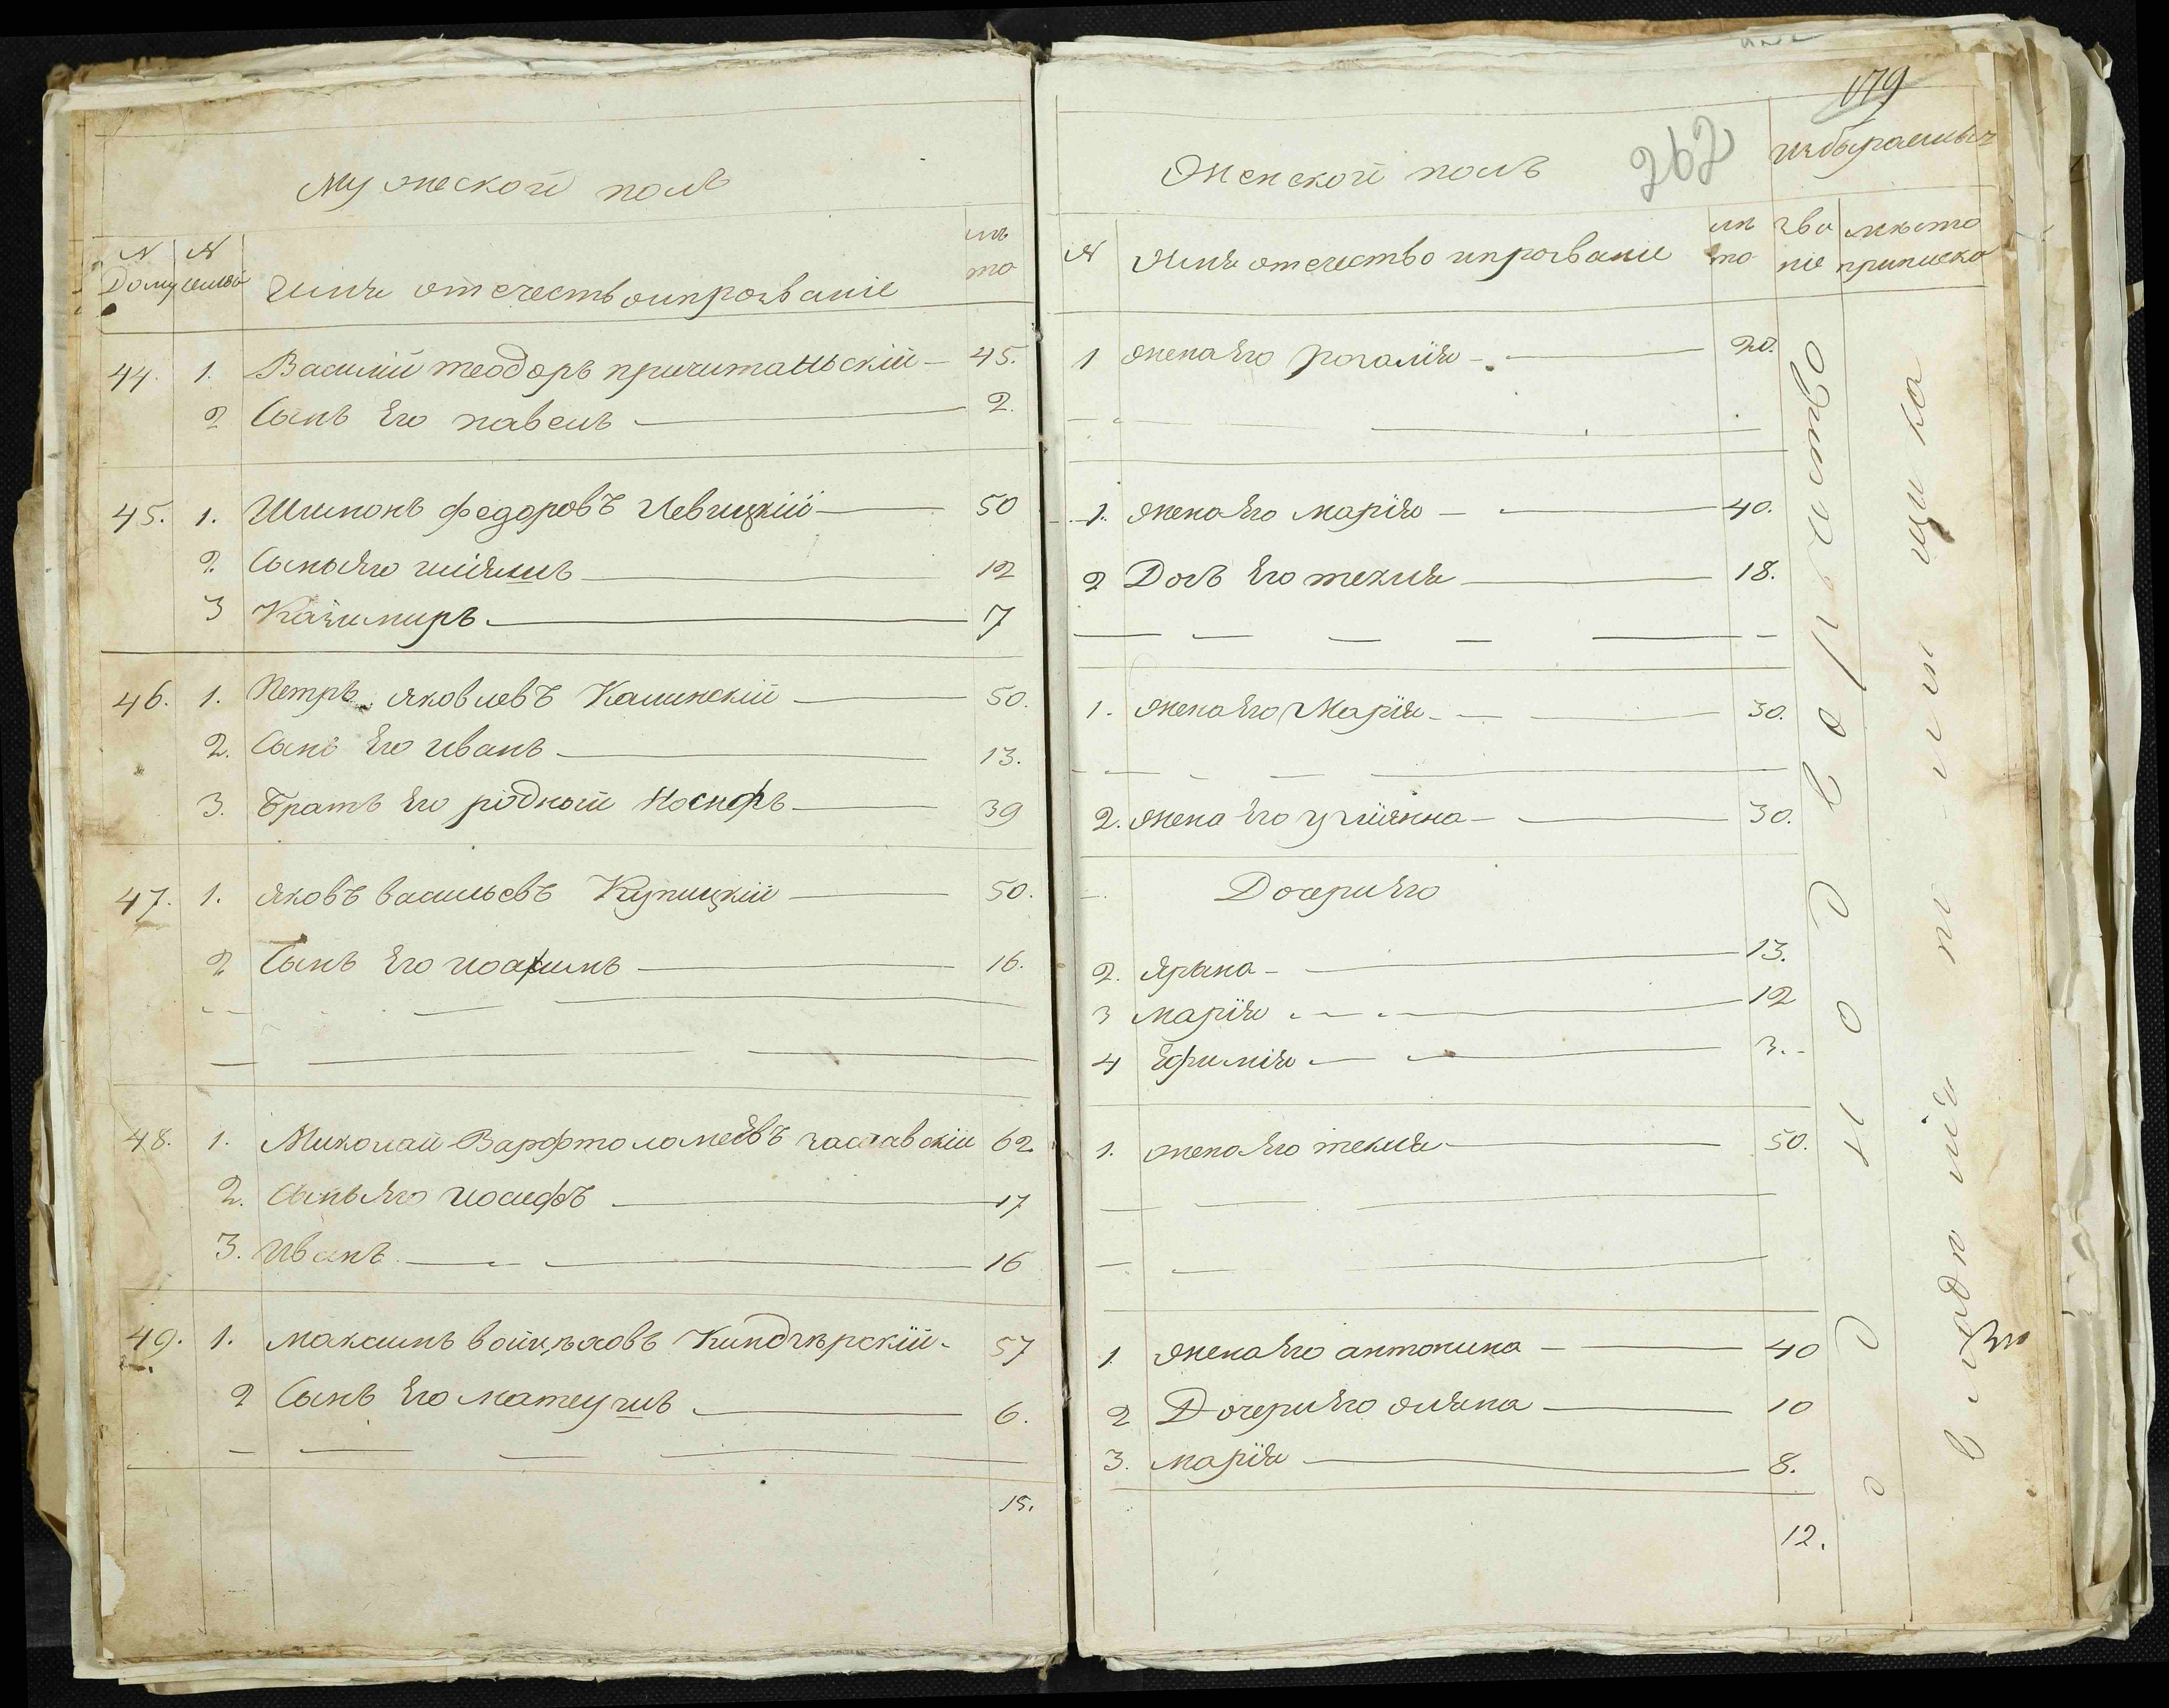 Мужеской полъ
N Дому
N семьи
Имя отечество и прозваніе
лѣто
44. 1. Василій теодоръ причитаньскій — 45.
2 Сынъ Его павелъ — 2.
45. 1. Шимонъ федоровъ Левицкій — 50
2. Сынъ Его
3 Казимиръ — 7
46. 1. Петръ яковлевъ Калинскій — 50.
2. Сынъ Его иванъ — 13.
3. братъ Его родный Носифъ — 39
47. 1. яковъ васильевъ Купицкій — 50.
2 Сынъ Его иоакимъ — 16.
48. 1. Миколай Варфтоломеевъ 62
2. Сынъ Его иосифъ — 17
3. иванъ — 16
49. 1. максимъ войцѣховъ 57
2 Сынъ Его матеушъ — 6.
15.
179
262
Женской полъ
N Имя отечество и прозваніе
лѣто
звание
мѣсто приписки
1 жена Его розалія — 20.
1. жена Его марія — 40.
2 Дочь Его текля — 18.
1. жена Его Марія — 30.
2. жена Его улиянна — 30.
Дочери Его
2. Ярына — 13.
3 марія — 12
4 Ефимія — 3.
1. жена Его текля — 50.
1. жена Его антонина — 40
2 Дочери Его 10
3. марія — 8.
12.